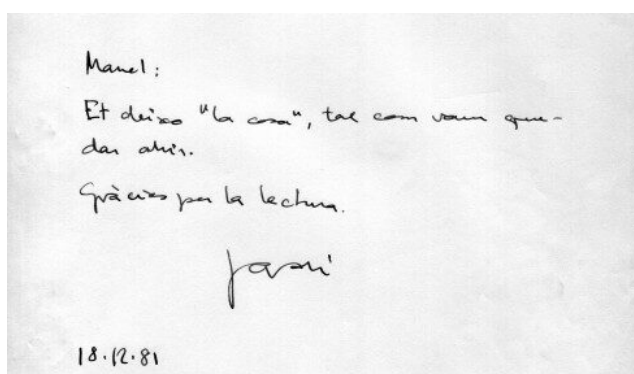 Manel:
Et deixo "la cosa", tal com vam que-
dar ahir.
Gràcies per la lectura.
18.12.81